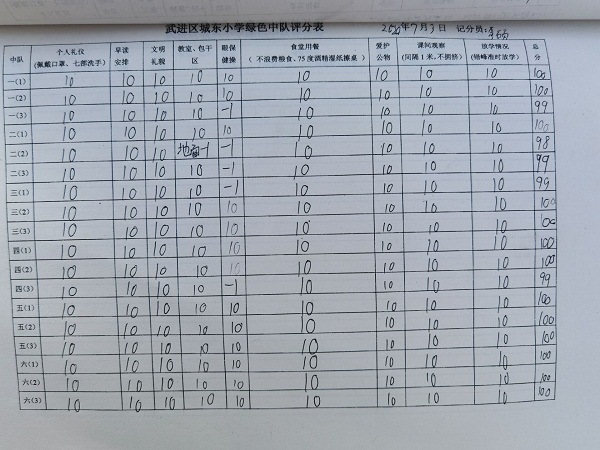 武进区城东小学绿色中队评分表 7月3日 记分员:
中队 个人礼仪(佩戴口罩、七部洗手) 早读安排 文明礼貌 教室、包干区 眼保健操 食堂用餐(不浪费粮食、75度酒精湿纸擦桌) 爱护公物 课间观察(间隔1米,不拥挤) 放学情况(错峰准时放学) 总分
一(1) 10 10 10 10 10 10 10 10 10 100
一(2) 10 10 10 10 10 10 10 10 10 100
一(3) 10 10 10 10 -1 10 10 10 10 99
二(1) 10 10 10 10 10 10 10 10 10 100
二(2) 10 10 10 地面-1 -1 10 10 10 10 98
二(3) 10 10 10 10 -1 10 10 10 10 99
三(1) 10 10 10 10 -1 10 10 10 10 99
三(2) 10 10 10 10 10 10 10 10 10 100
三(3) 10 10 10 10 10 10 10 10 10 100
四(1) 10 10 10 10 10 10 10 10 10 100
四(2) 10 10 10 10 10 10 10 10 10 100
四(3) 10 10 10 10 -1 10 10 10 10 99
五(1) 10 10 10 10 10 10 10 10 10 100
五(2) 10 10 10 10 10 10 10 10 10 100
五(3) 10 10 10 10 10 10 10 10 10 100
六(1) 10 10 10 10 10 10 10 10 10 100
六(2) 10 10 10 10 10 10 10 10 10 100
六(3) 10 10 10 10 10 10 10 10 10 100